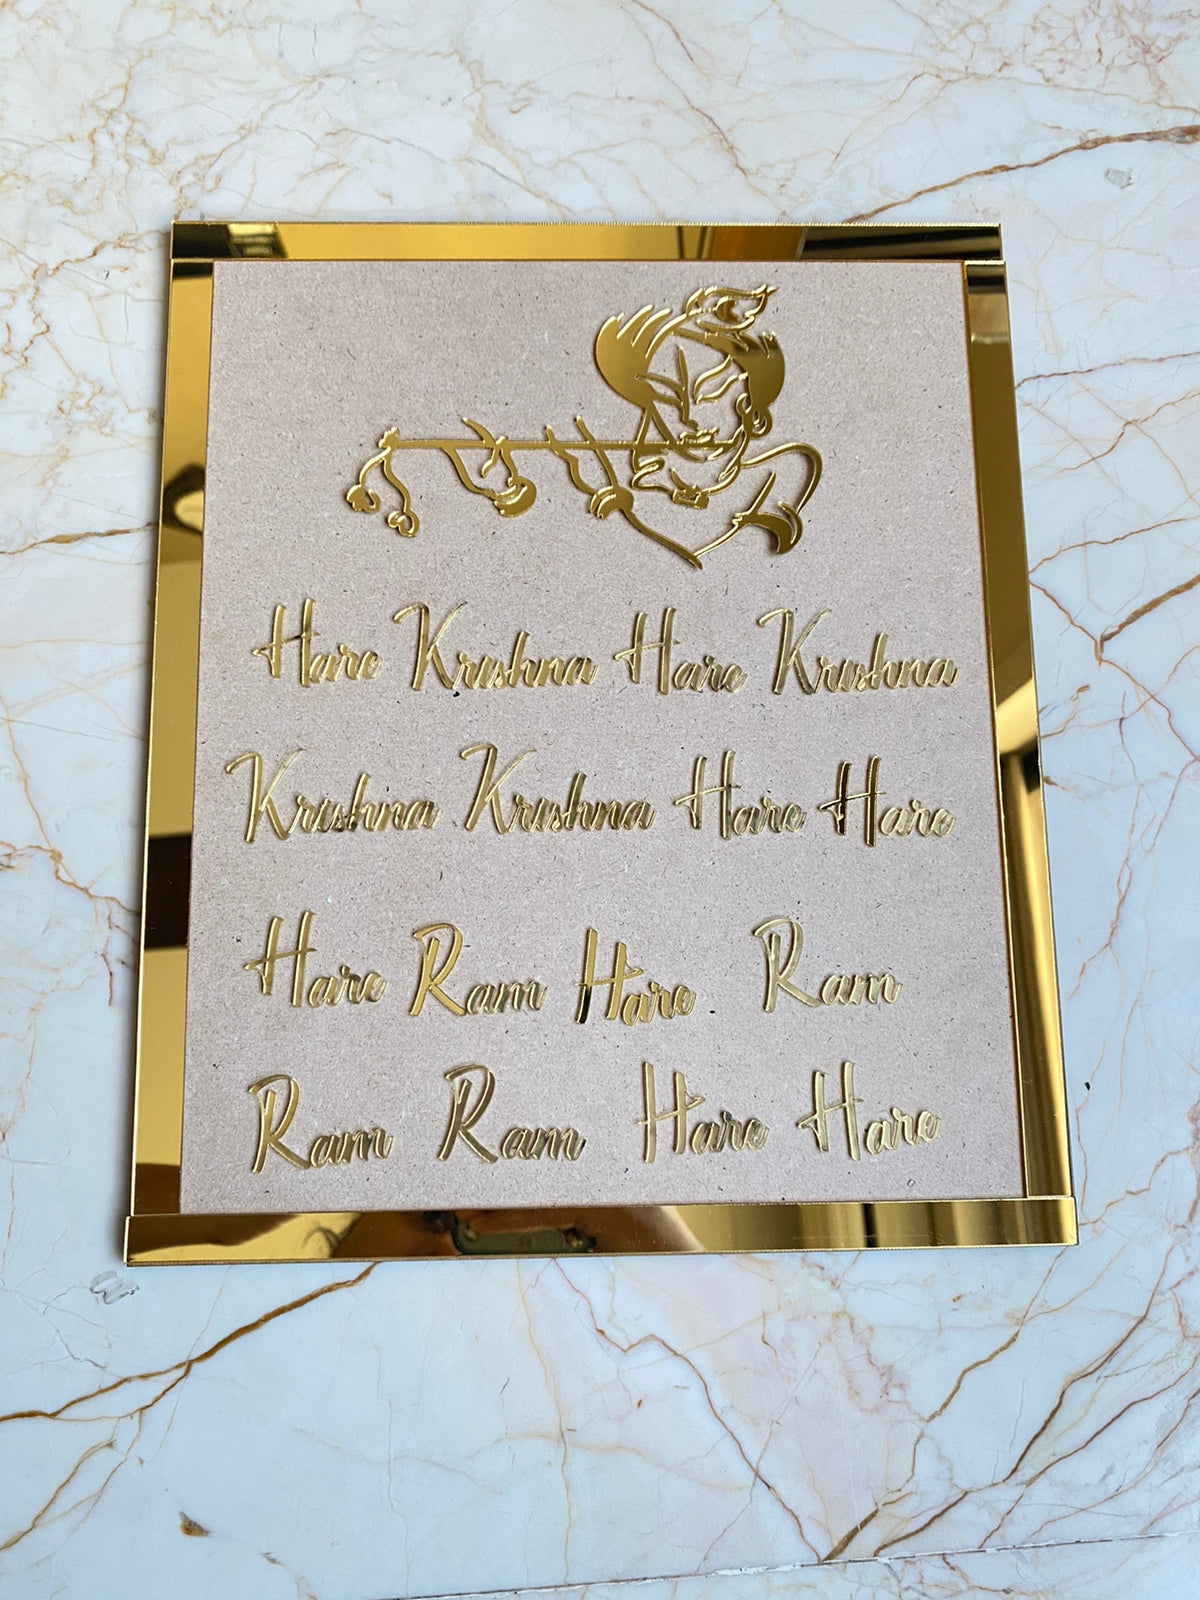 Hare Krishna Hare Krishna
Krishna Krishna Hare Hare
Hare Ram Hare Ram
Ram Ram Hare Hare